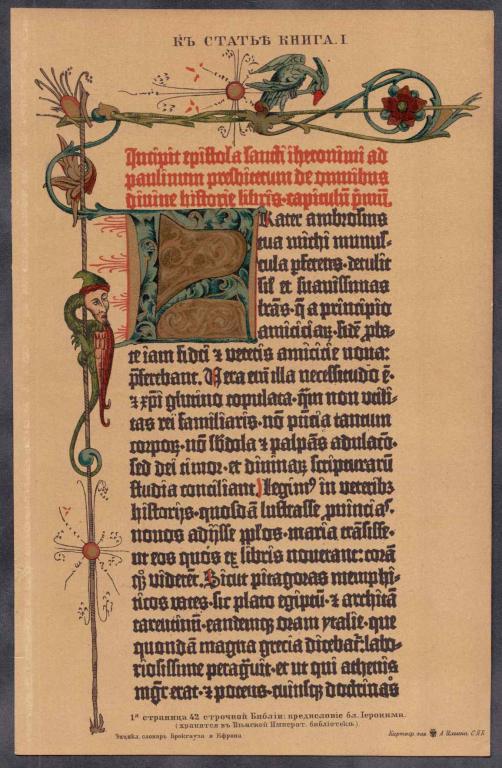 КЪ СТАТЬѢ КНИГА. I
Incipit epistola sancti iheronimi ad
paulinum presbiterum de omnibus
divine historie libris. capitulū pmū.
Frater ambrosius
tua michi munus-
cula pferens. detulit
sił et suavissimas
lrās. q̄ a principio
amiciciaꝝ. fidē pba-
te iam fidei ⁊ veteris amicicie nova:
pferebant. Vera eni illa necessitudo ē.
⁊ xpi glutino copulata. qm non utili-
tas rei familiaris. nō pncia tantum
corpoꝝ. nō sbdola ⁊ palpās adulacō.
sed dei timor. et divinaꝝ scripturarū
studia conciliant. Legim⁹ in veteribꝫ
historijs. quosdā lustrasse pvincias.
novos adijsse pplos. maria trāsisse.
ut eos quos ex libris noverant: corā
qꝫ viderēt. Sicut pitagoras memphi-
ticos vates. sic plato egiptū. ⁊ architā
tarentinū. eandemqꝫ oram ytalie. que
quondā magna grecia dicebat: labo-
riosissime peragvit. et ut qui athenis
mgr erat. ⁊ potens. cuiusqꝫ doctrinas
1ª страница 42 строчной Библіи: предисловіе бл. Іеронима.
(хранится въ Вѣнской Императ. библіотекѣ).
Энцикл. словарь Брокгауза и Ефрона
Картогр. зав. А. Ильина, С.П.Б.